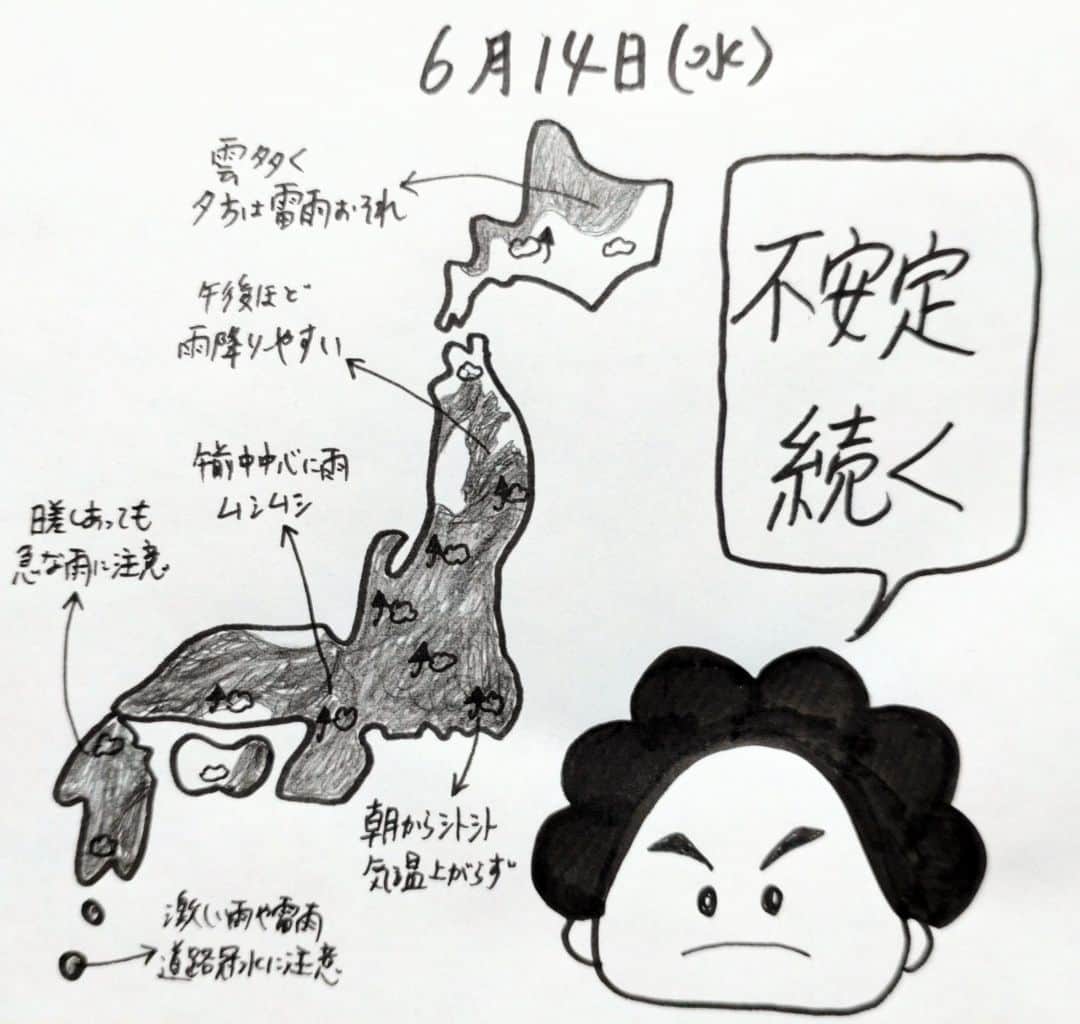 6月14日(水)
雲多く
夕方は雷雨おそれ
不安定
続く
午後ほど
雨降りやすい
午前中中心に雨
ムシムシ
日差しあっても
急な雨に注意
朝からシトシト
気温上がらず
激しい雨や雷雨
道路冠水に注意